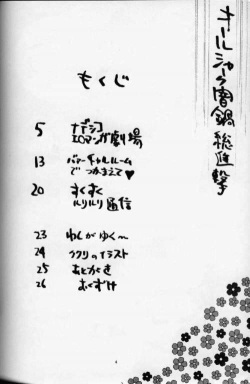 オールジャンク闇鍋総進撃
もくじ
5 ナデシコ
エロマンガ劇場
13 バーチャルルーム
でつかまえて♥
20 すくすく
ルリルリ通信
23 わしがゆく〜
24 ククリのイラスト
25 あとがき
26 おくづけ
4